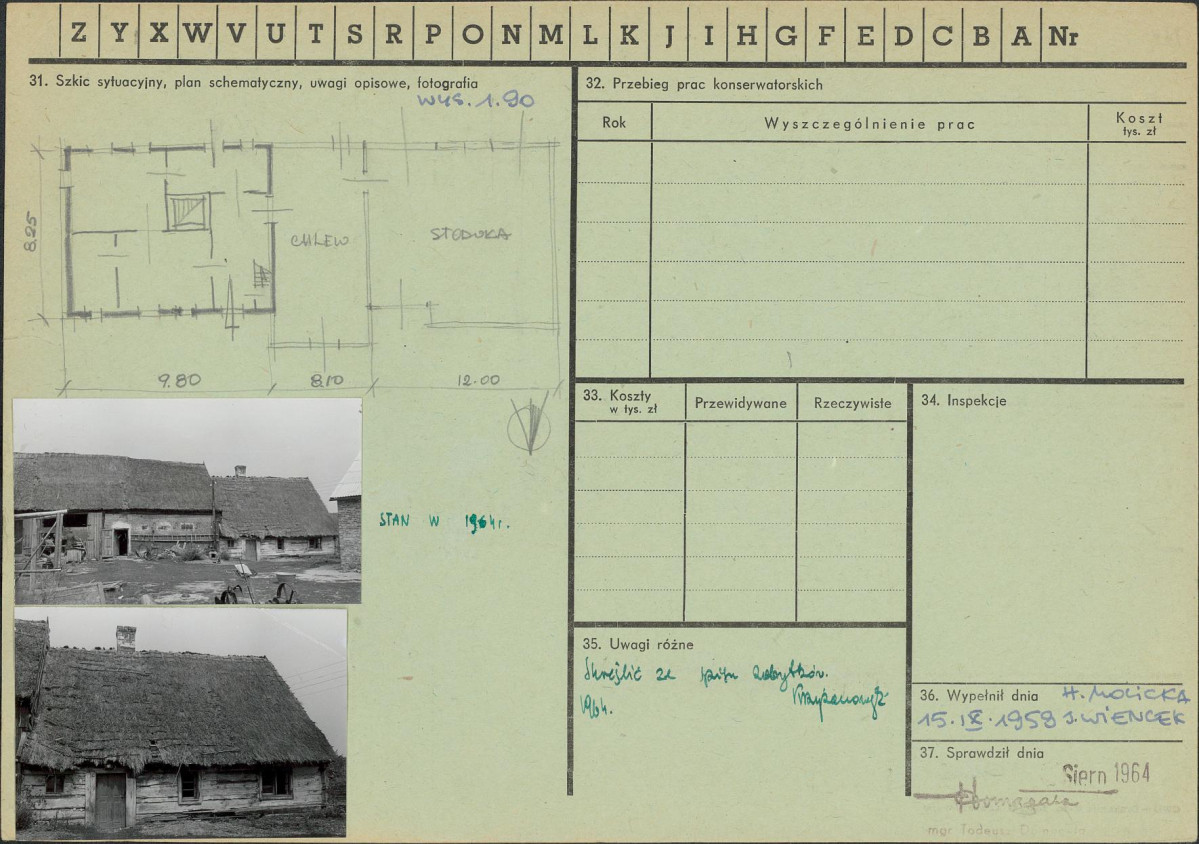 Z Y X W V U T S R P O N M L K J I H G F E D C B A Nr
31. Szkic sytuacyjny, plan schematyczny, uwagi opisowe, fotografia
wys. 1.90
8.25
CHLEW
STODOŁA
9.80
8.10
12.00
STAN W 1964r.
32. Przebieg prac konserwatorskich
Rok
Wyszczególnienie prac
Koszt
tys. zł
33. Koszty
w tys. zł
Przewidywane
Rzeczywiste
34. Inspekcje
35. Uwagi różne
Skreślić ze spisu zabytków.
1964.
36. Wypełnił dnia H. MOLICKA
15.IX.1959 J. WIENCEK
37. Sprawdził dnia
Siern 1964
mgr Tadeusz